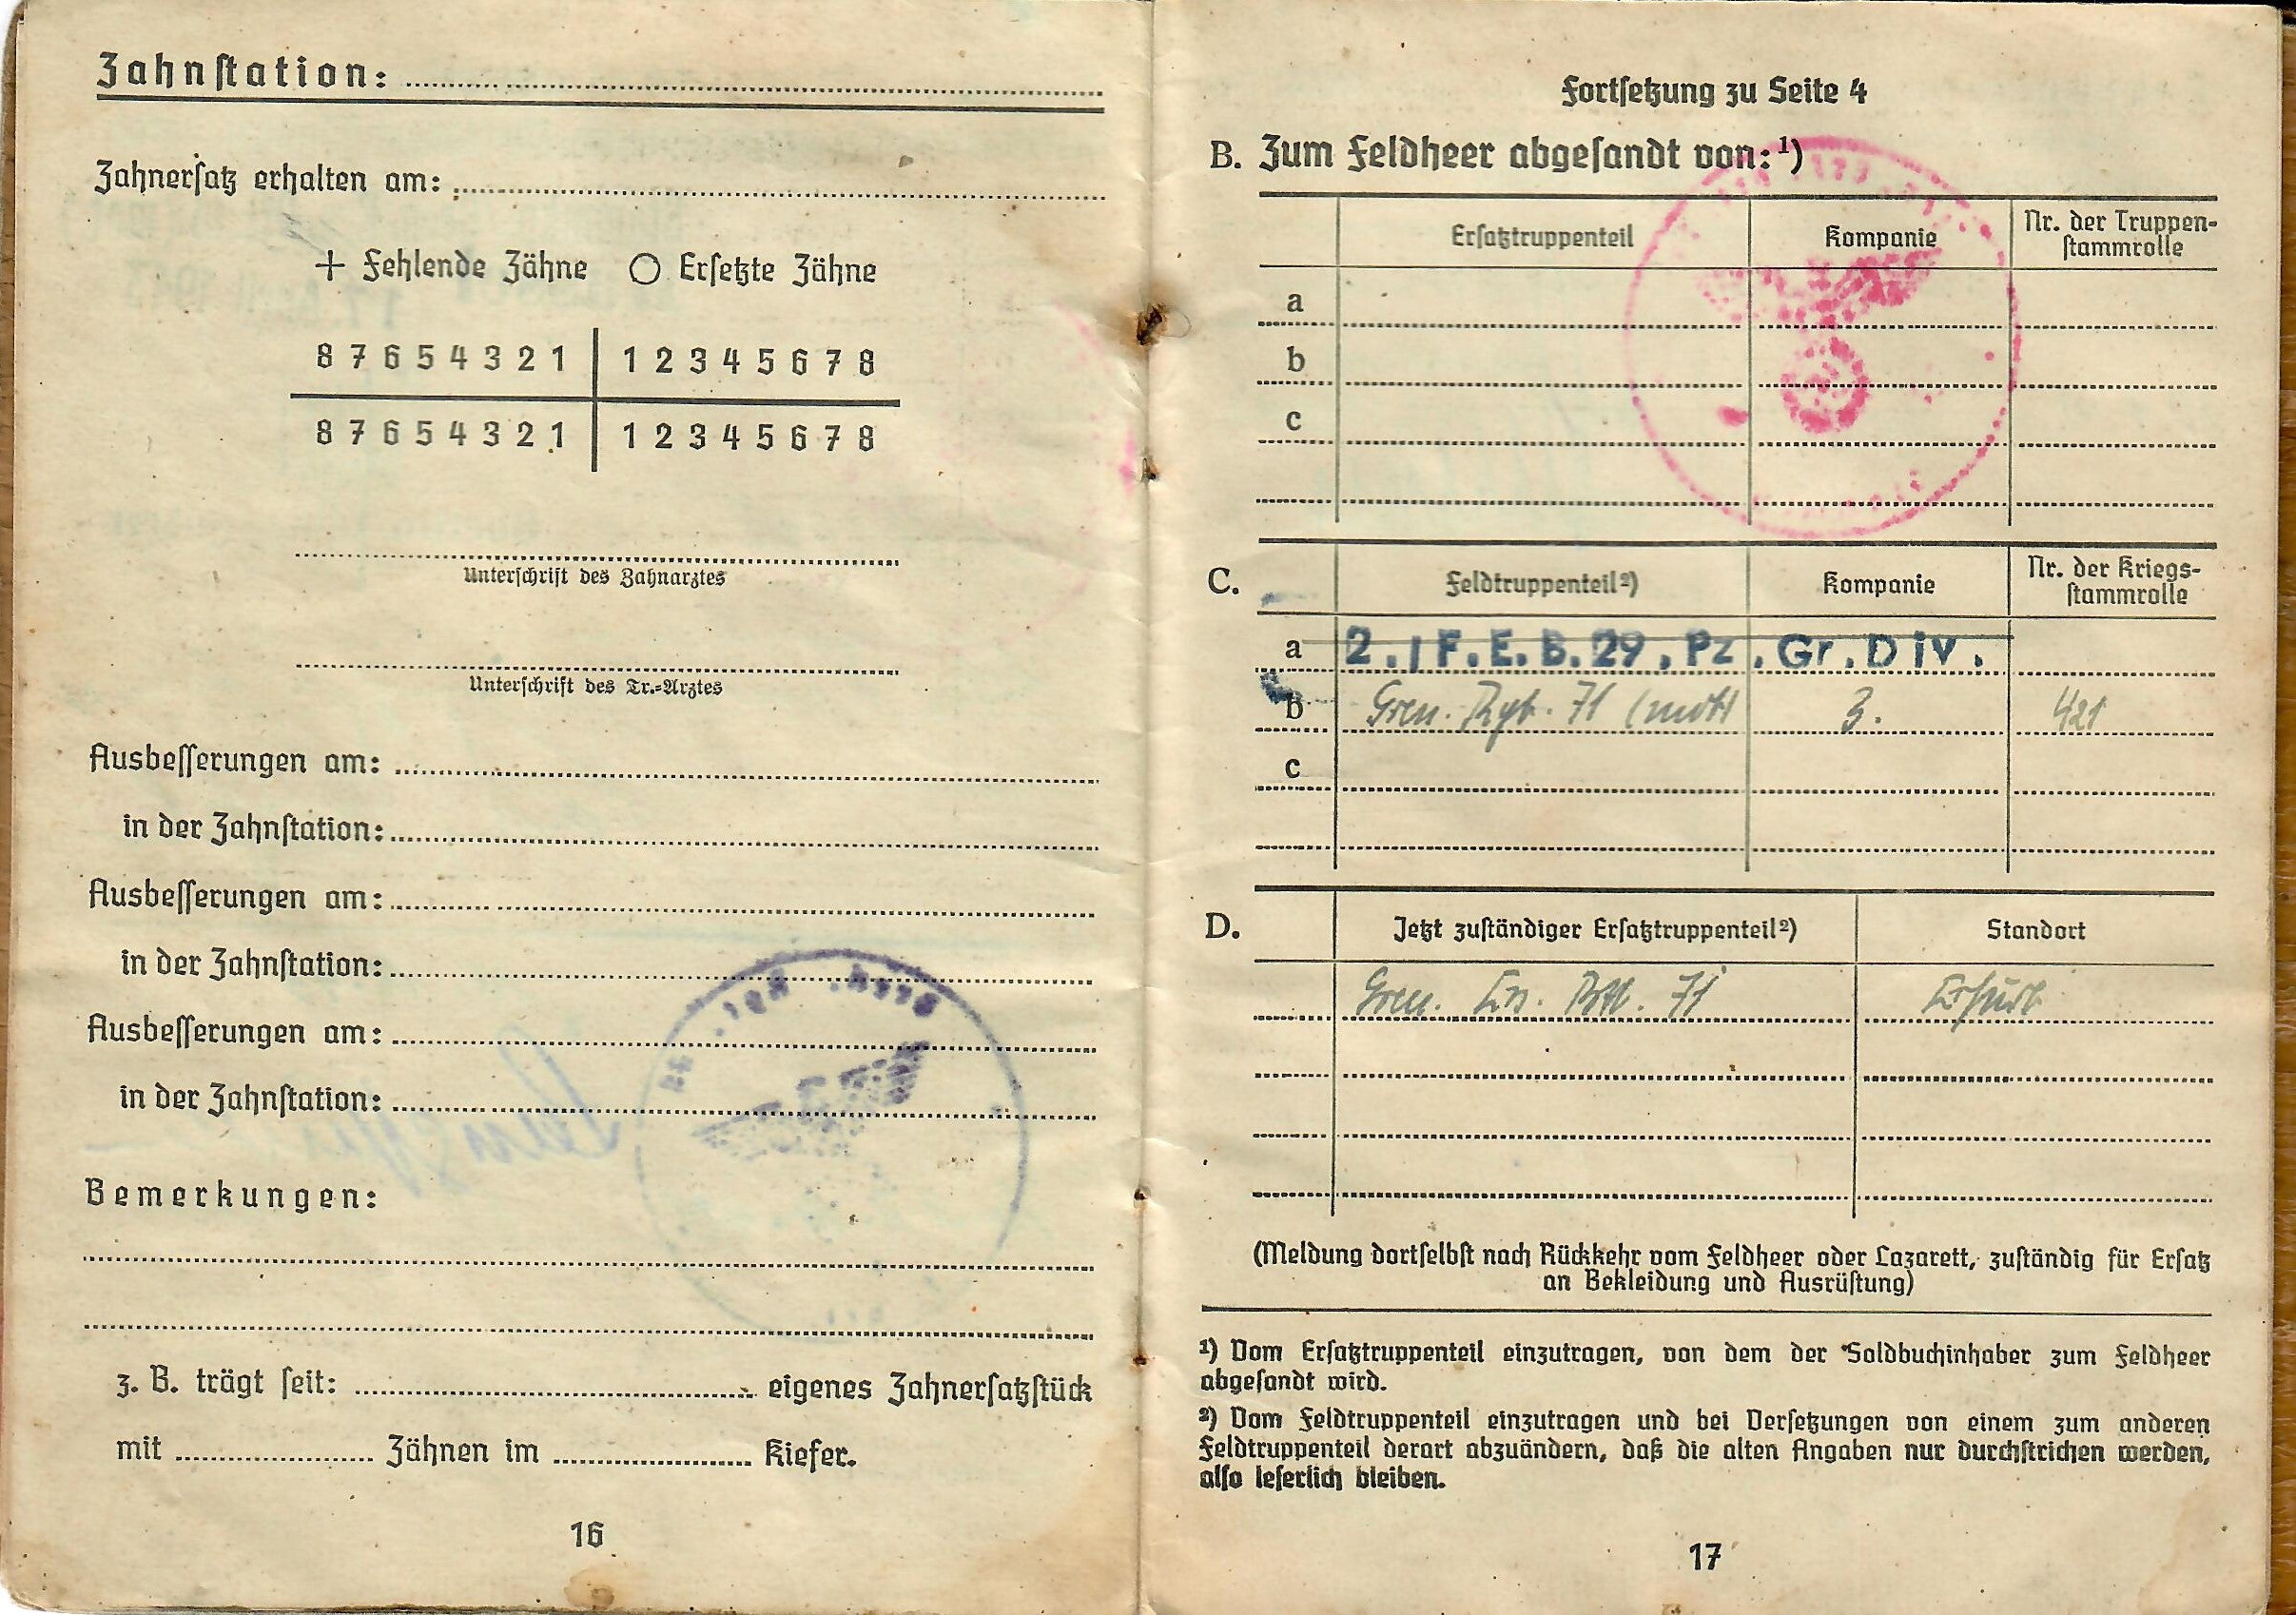 Zahnstation:
Zahnersatz erhalten am:
+ Fehlende Zähne ○ Ersetzte Zähne
8 7 6 5 4 3 2 1 | 1 2 3 4 5 6 7 8
8 7 6 5 4 3 2 1 | 1 2 3 4 5 6 7 8
Unterschrift des Zahnarztes
Unterschrift des Tr.-Arztes
Ausbesserungen am:
in der Zahnstation:
Ausbesserungen am:
in der Zahnstation:
Ausbesserungen am:
in der Zahnstation:
Bemerkungen:
z. B. trägt seit: eigenes Zahnersatzstück
mit Zähnen im Kiefer.
16
Fortsetzung zu Seite 4
B. Zum Feldheer abgesandt von: ¹)
Ersatztruppenteil Kompanie Nr. der Truppen-
stammrolle
a
b
c
C. Feldtruppenteil²) Kompanie Nr. der Kriegs-
stammrolle
a 2./F.E.B.29.Pz.Gr.Div.
b Gren. Rgt. 71 (mot) 3. 421
c
D. Jetzt zuständiger Ersatztruppenteil²) Standort
Gren. Ers. Btl. 71 Erfurt
(Meldung dortselbst nach Rückkehr vom Feldheer oder Lazarett, zuständig für Ersatz
an Bekleidung und Ausrüstung)
¹) Vom Ersatztruppenteil einzutragen, von dem der Soldbuchinhaber zum Feldheer
abgesandt wird.
²) Vom Feldtruppenteil einzutragen und bei Versetzungen von einem zum anderen
Feldtruppenteil derart abzuändern, daß die alten Angaben nur durchstrichen werden,
also leserlich bleiben.
17